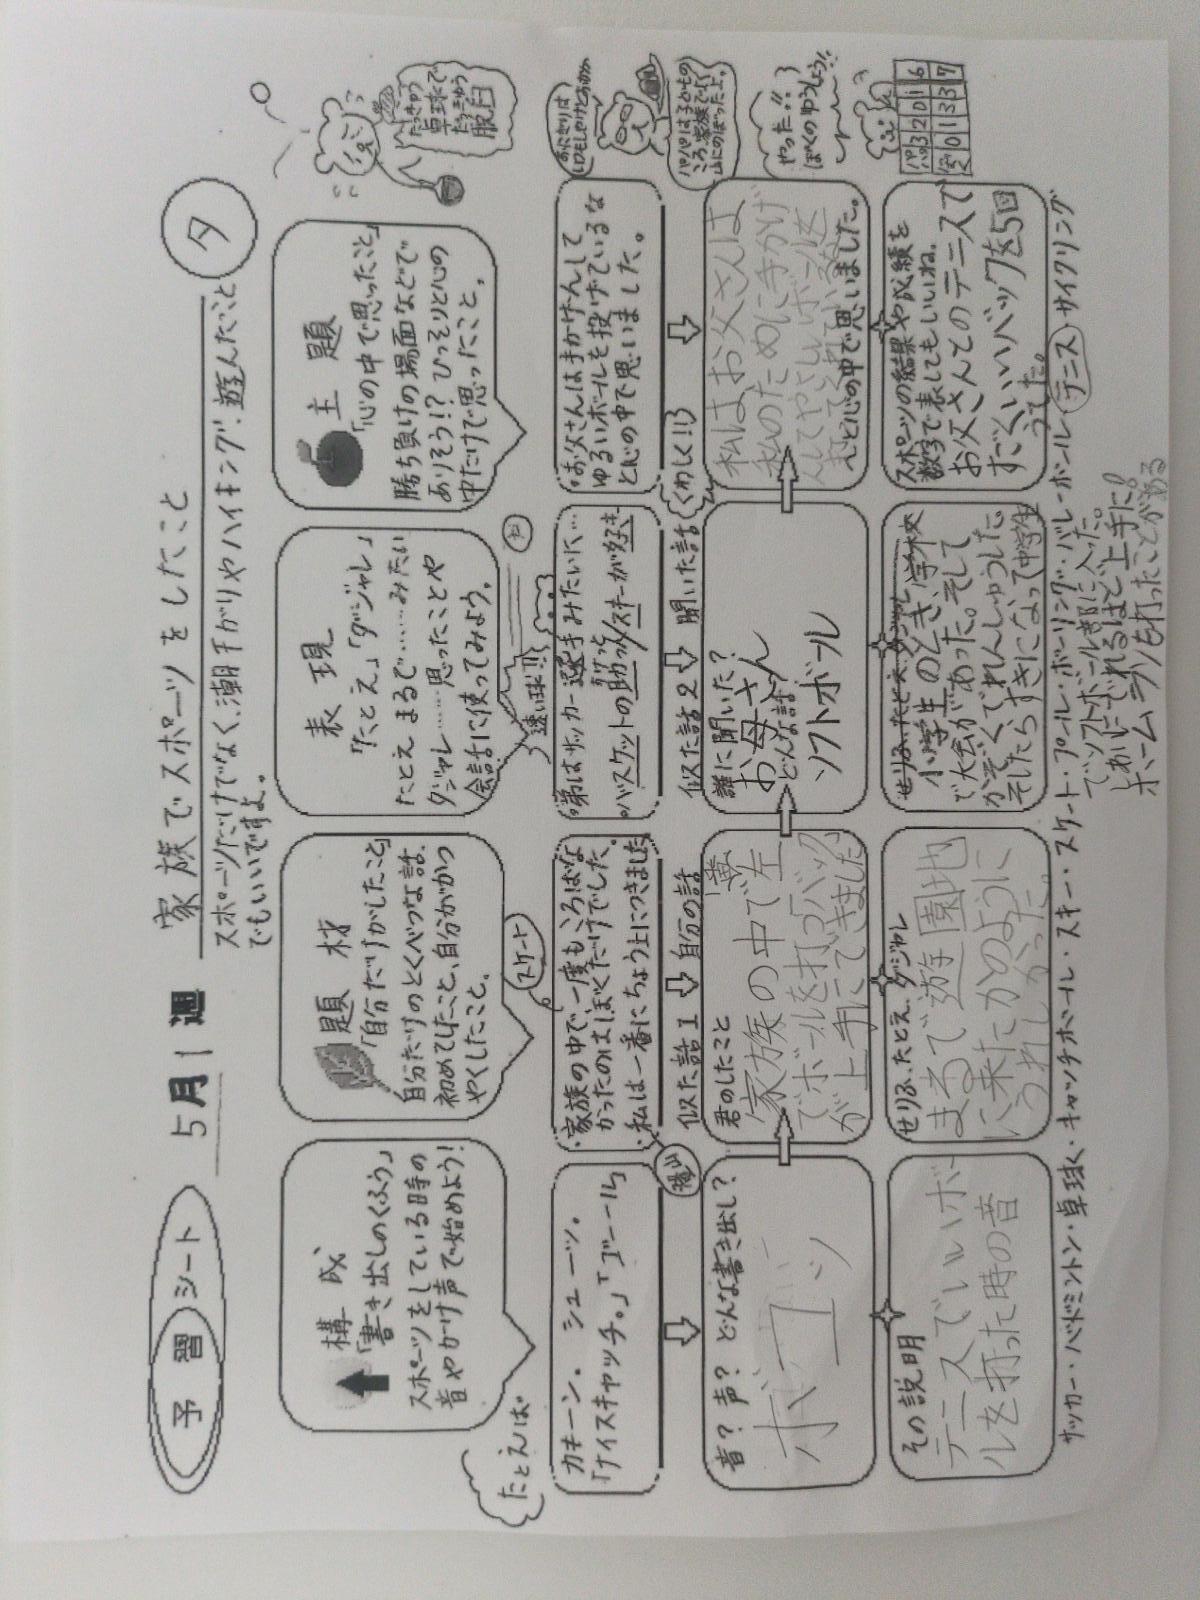 予習シート
5月1週
家族でスポーツをしたこと
夕
スポーツだけでなく、潮干がりやハイキング、遊んだこと
でもいいですよ。
構成
「書き出しのくふう」
スポーツをしている時の
音やかけ声で始めよう!
題材
「自分だけがしたこと」
自分だけのとくべつな話。
初めてしたこと、自分がかつ
やくしたこと。
表現
「たとえ」「ダジャレ」
たとえ まるで……みたい
ダジャレ……思ったことや
会話に使ってみよう。
主題
「心の中で思ったこと」
勝ち負けの場面などで
ありそう!?ひっそりと心の
中だけで思ったこと。
卓球で
脱臼
たとえば。
カキーン。シューッ。
「ナイスキャッチ。」「ゴール」
スケート
・家族の中で、一度もころばな
かったのはぼくだけでした。
・私は一番にちょう上につきました
登山
速い球!!
・弟はサッカー選手みたいに…
・バスケットの助っ人/スキーが好き
・お父さんは手かげんして
ゆるいボールを投げているな
と心の中で思いました。
おにぎりは
パパは子どもの
ころ、家族で
山にのぼったよ。
似た話1
自分の話
似た話2
聞いた話
くわしく!!
音?声?どんな書き出し?
ボーン
君のしたこと
家族の中で左
でボールを打つバック
が上手にできました
誰に聞いた?
お母さん
どんな話
ソフトボール
私はお父さんは
私のために手かげ
んしてやさしいボールを
と心の中で思いました。
やった!!
ぼくのゆうしょう!!
その説明
テニスでいいボー
ルを打った時の音
せりふ、たとえ、ダジャレ
まるで遊園地
に来たかのように
うれしかった。
せりふ、たとえ、ダジャレ
小学生のとき、学校
で大会があった。そして
かぞくでれんしゅうした
そしたらすきになって中学生
でソフトボール部に入った。
しあいにでれるほど上手に!
ホームランを打ったことがある
スポーツの結果や成績を
数字で表してもいいね。
お父さんとのテニスで
すごくいいバックを5回
うてた。
パパ 3 2 0 1 6
0 1 3 3 7
サッカー・バドミントン・卓球・キャッチボール・スキー・スケート・プール・ボーリング・バレーボール・テニス・サイクリング